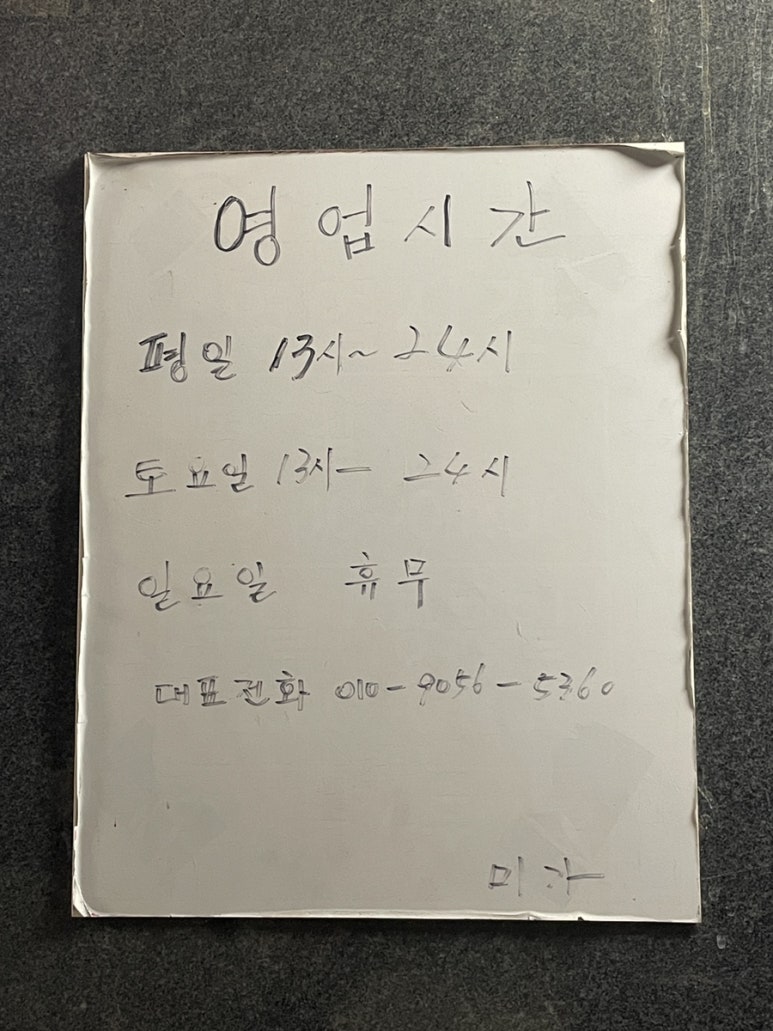 영업시간
평일 13시~ 24시
토요일 13시- 24시
일요일 휴무
대표전화 010-9056-5360